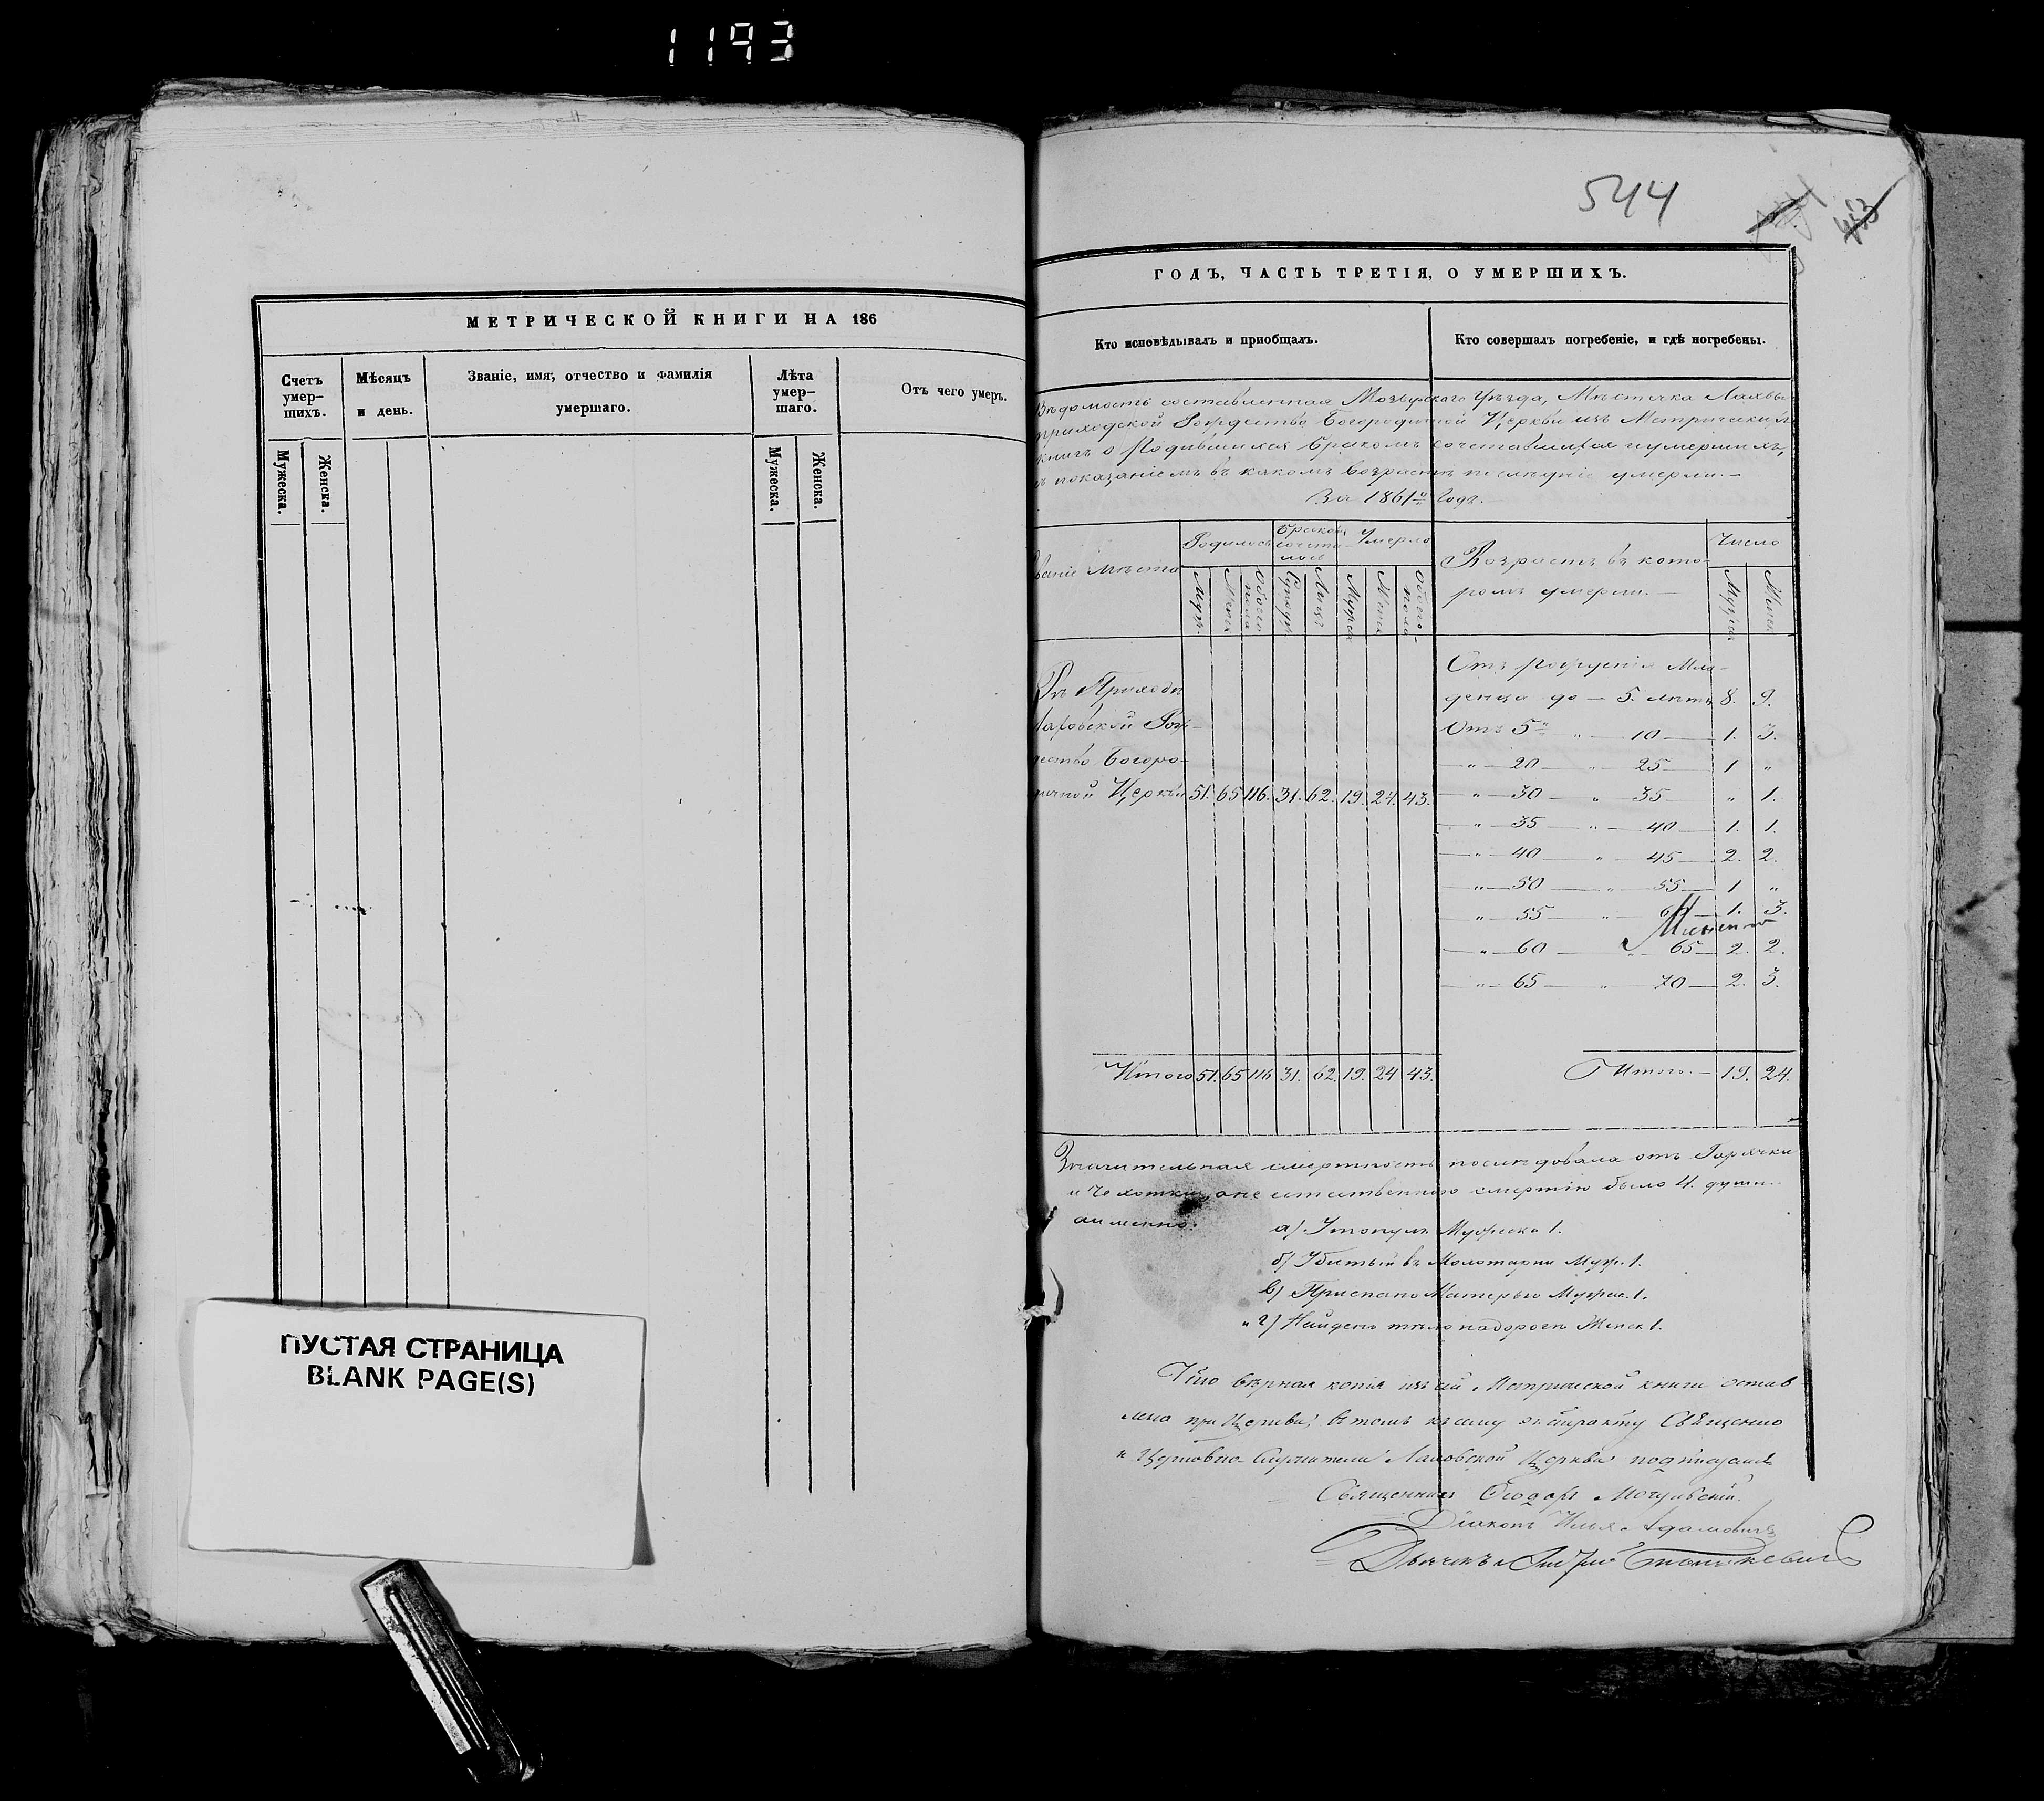 1193
МЕТРИЧЕСКОЙ КНИГИ НА 186
Счетъ умер-шихъ.
Мѣсяцъ и день.
Званіе, имя, отчество и фамилія умершаго.
Лѣта умер-шаго.
Отъ чего умеръ.
Мужеска.
Женска.
Мужеска.
Женска.
ПУСТАЯ СТРАНИЦА
BLANK PAGE(S)
544
ГОДЪ, ЧАСТЬ ТРЕТІЯ, О УМЕРШИХЪ.
Кто исповѣдывалъ и пріобщалъ.
Кто совершалъ погребеніе, и гдѣ погребены.
Вѣдомость составленная Мозырскаго Уѣзда, Мѣстечка Лахвы
приходской Рождество Богородичной Церкви изъ Метрическихъ
книгъ о Родившихся бракомъ сочетавшихся и умершихъ,
показаніемъ въ какомъ возрастѣ послѣдніе умерли.—
За 1861й Годъ.
ваніе Мѣста
Родилось
Браком сочета-лось
Умерло
Возрастъ въ кото-
ромъ умерли.—
Число
Муж.
Женск
Обоего пола
Супруж
Лицъ
Мужск
Женск
Обоего пола
Мужск
Женск
Въ Приходѣ
Лахвской Рож-
ество Богоро-
ичной Церкви 51. 65 116. 31. 62. 19. 24. 43.
Отъ рожденія Мла-
денца до — 5. лѣтъ 8. 9.
Отъ 5и " — 10 — 1. 3.
— " — 20 — " 25 — 1 "
— " — 30 " 35 " 1.
— " — 35 — " — 40 — 1. 1.
— " — 40 — " — 45 — 2. 2.
" — 50 — " — 55 — 1 "
" — 55 " 60 — 1. 3.
— " — 60 — " 65 — 2. 2.
" — 65 — " 70 — 2. 3.
Итого 51. 65 116 31. 62. 19. 24 43.
Итого. — 19. 24.
Значительная смертность послѣдовала отъ Горячки
и Чехотки, а не естественною смертію было 4. души
а именно:
а) Утонул. Мужеска 1.
б) Убитый въ Молотарни Муж. 1.
в) Приспано Матерью Мужск. 1.
г) Найдено тѣло на дорогѣ Женск 1.
Что вѣрная копія изъ сій Метрической книги остав
лена при Церкви; въ томъ къ сему экстракту Священно
и Церковно-Служители Лахвской Церкви подписался
Священникъ Ѳеодоръ Мочульскій.
Діаконъ Илья Адамовичъ